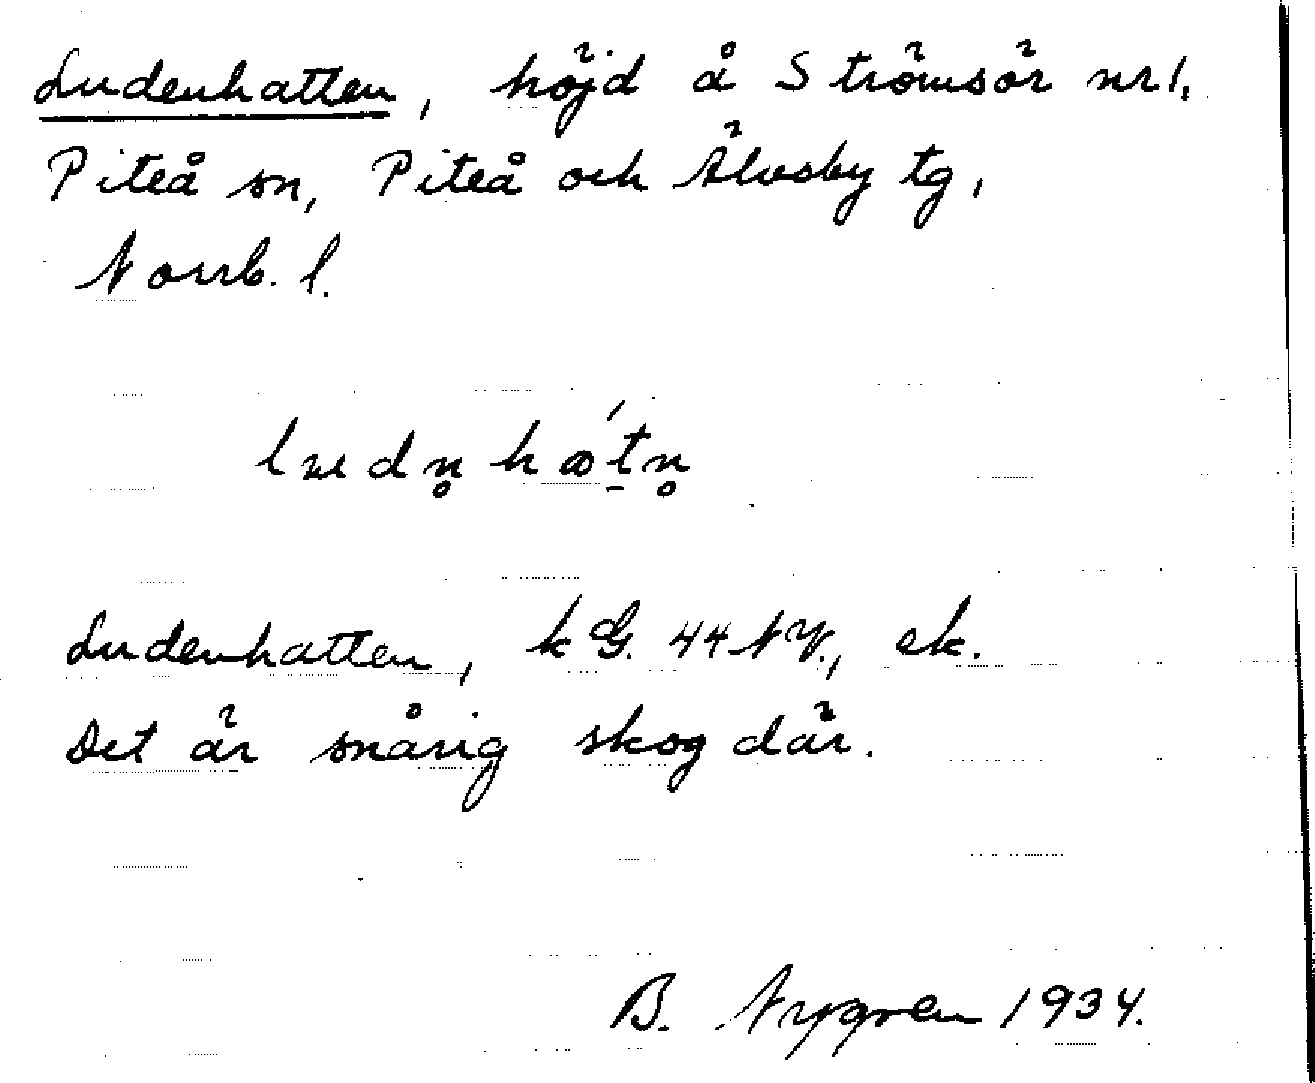 Ludenhatten, höjd å Strömsör nr 1.
Piteå sn, Piteå och Älvsby tg,
Norrb. l.
Ludenhatten, kG. 44 NV., ek.
Det är snårig skog där.
B. Nygren 1934.